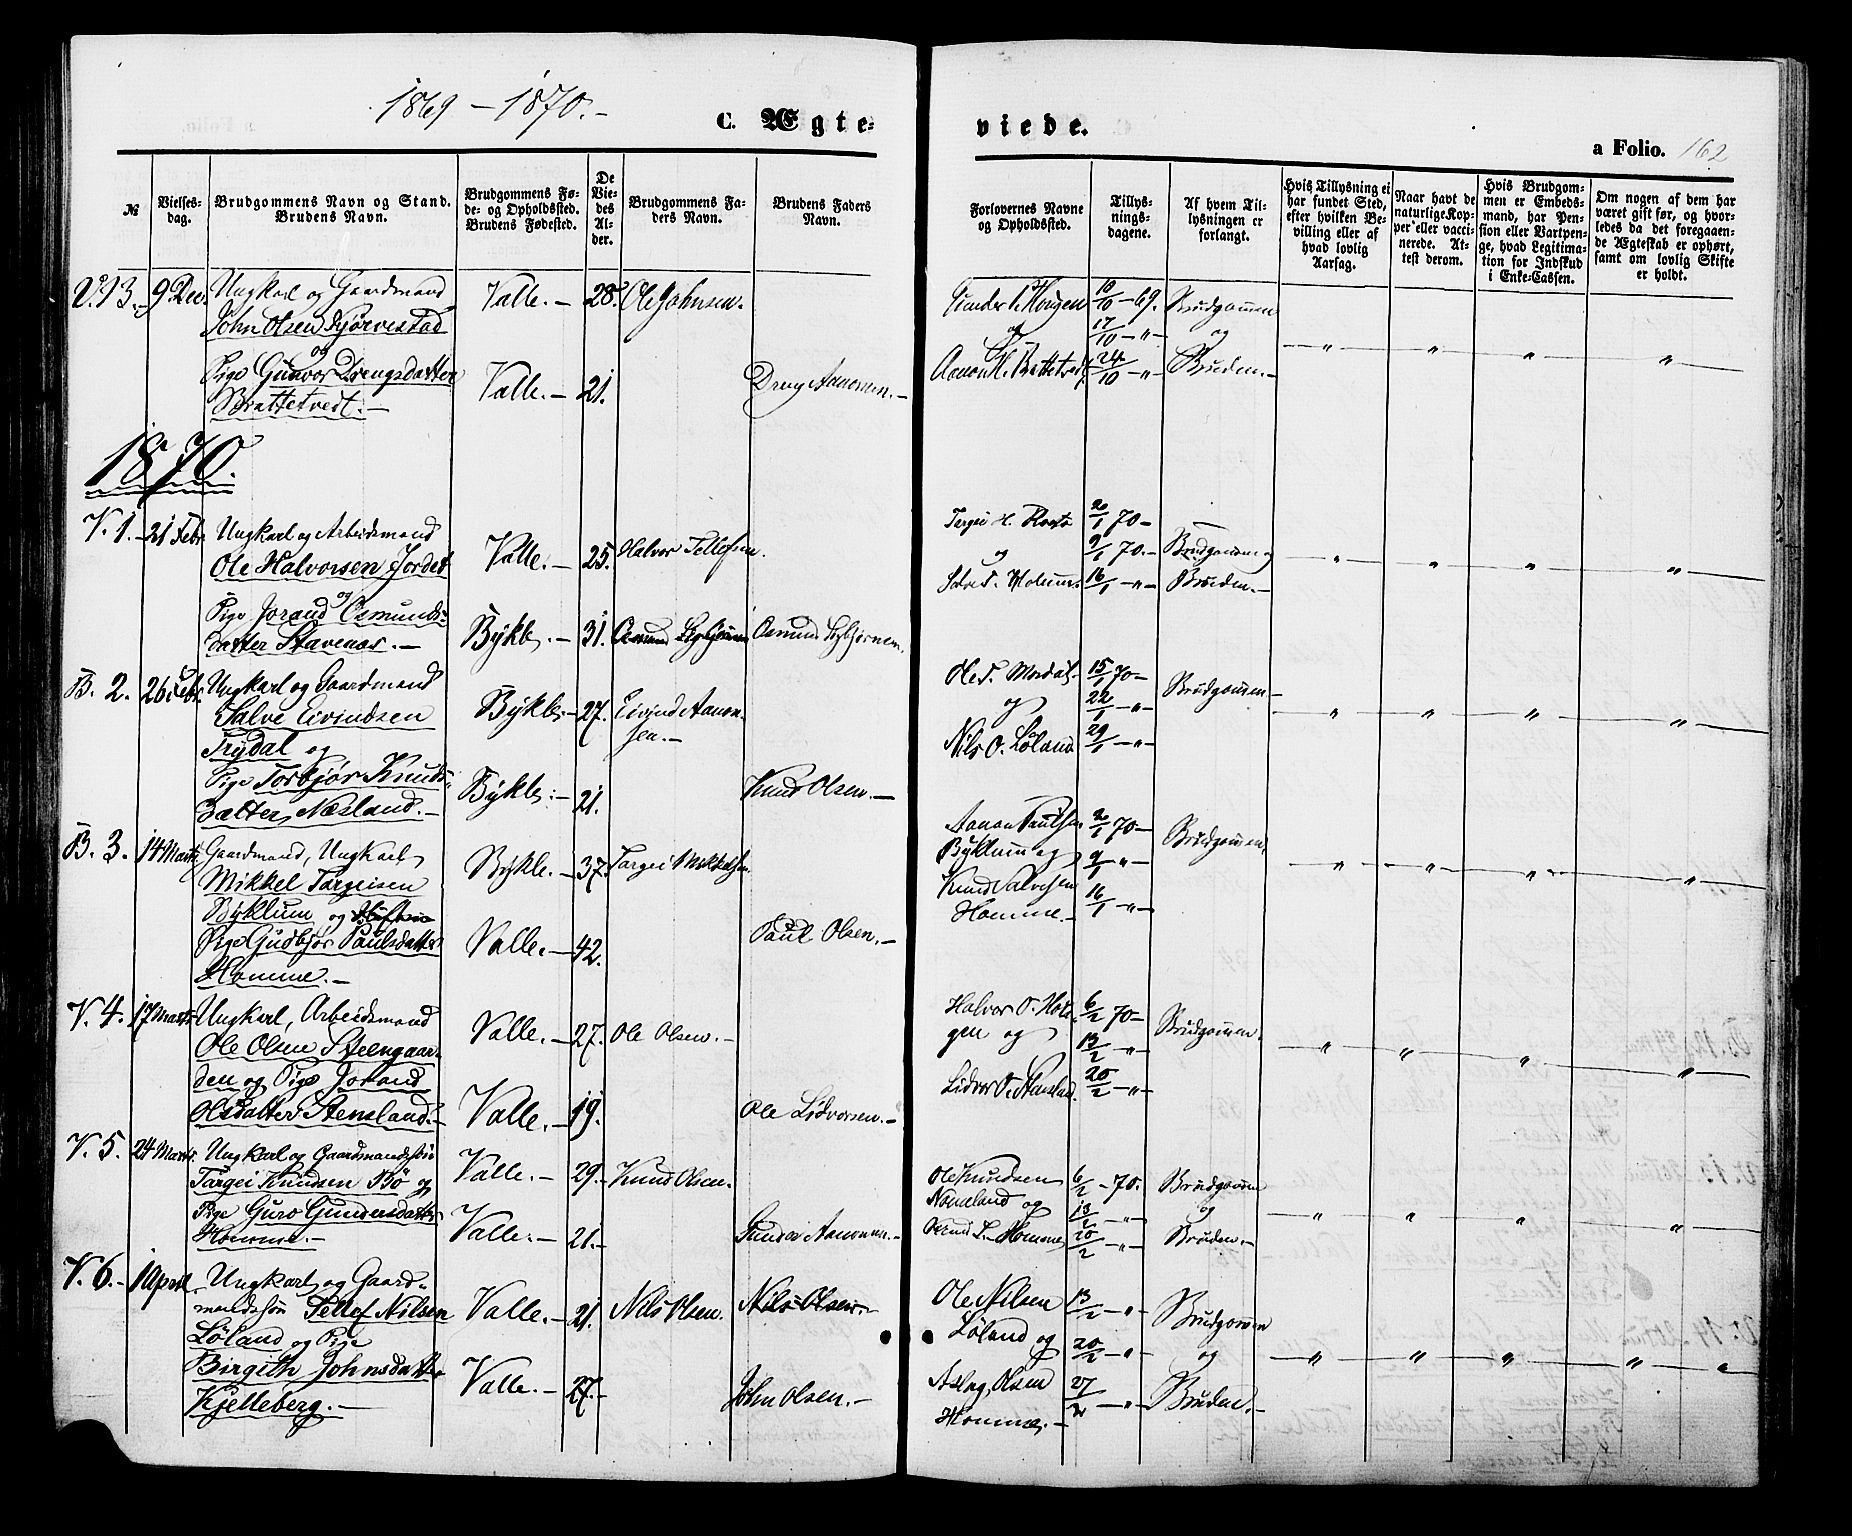 1869 – 1870.–
C. Ægte-
viede.
a Folio. 162
№
Vielses-
dag.
Brudgommens Navn og Stand.
Brudens Navn.
Brudgommens Fø-
de- og Opholdssted.
Brudens Fødested.
De
Vie-
des
Al-
der.
Brudgommens Fa-
ders Navn.
Brudens Faders
Navn.
Forlovernes Navne
og Opholdssted.
Tillys-
nings-
dagene.
Af hvem Til-
lysningen er
forlangt.
Hvis Tillysning ei
har fundet Sted,
efter hvilken Be-
villing eller af
hvad lovlig
Aarsag.
Naar havt de
naturlige Kop-
per eller vacci-
nerede. At-
test derom.
Hvis Brudgom-
men er Embeds-
mand, har Pen-
sion eller Vartpen-
ge, hvad Legitima-
tion for Indskud
i Enke-Cassen.
Om nogen af dem har
været gift før, og hvor-
ledes da det foregaaen-
de Ægteskab er ophørt,
samt om lovlig Skifte
er holdt.
V. 13. 9 Dec. Ungkarl og Gaardmand Valle.– 28. Ole Johnsen. 10/10 – 69. Brudgommen
John Olsen 17/10 – " og
og
Pige Gunvor Drengsdatter Valle.– 21. Dreng Aanonsen.– 24/10 – " Bruden.–
Brattetveit.–
1870.
V. 1. 21 Febr. Ungkarl og Arbeidsmand Valle.– 25. Halvor Tellefsen. 2/1 70–
Ole Halvorsen Jordet og 9/1 70.– Brudgommen og
og 16/1 – " – Bruden.–
Pige Jorand Osmunds- Bykle.– 31. Osmund Osmund
datter Stavenes.–
B. 2. 26 Febr. Ungkarl og Gaardmand Bykle.– 27. Eivind Aanon- Ole T. 15/1 70– Brudgommen–
Salve Eivindsen sen.– og 22/1 – " –
Trydal og Nils O. Løland 29/1 – " –
Pige Torbjør Knuds- Bykle.– 21. Knud Olsen.–
datter Næsland.–
B. 3. 14 Marts Gaardmand, Ungkarl Bykle.– 37. Targei Mikkelsen. Aanon Paulsen 2/1 70– Brudgommen.
Mikkel Targeisen Byklum og 9/1 – "
Byklum og Knud Salvesen 16/1 – " –
Pige Gudbjør Paulsdatter Valle.– 42. Paul Olsen.– Homme.–
Homme.–
V. 4. 17 Marts Ungkarl, Arbeidsmand Valle.– 27. Ole Olsen.– Halvor O. 6/2 70– Brudgommen.
Ole Olsen Steengaar- gen og 13/2 – "
den og Pige Jorand Lidvor O. Stensland. 20/2 – " –
Olsdatter Stensland.– Valle.– 19. Ole Lidvorsen.–
V. 5. 24 Marts. Ungkarl og Gaardmandssøn Valle.– 29.– Knud Olsen. Ole Knudsen 6/2 – 70. Brudgommen
Targei Knudsen Bø og Nomeland og 13/2 – " – og
Pige Guro Gundersdatter Valle.– 21.– Gunder Aanonsen.– Homme 20/2 – " – Bruden.–
Homme.–
V. 6.– 1 April Ungkarl og Gaard- Valle.– 21. Nils Olsen. Nils Olsen Ole Nilsen 13/2 – " – Brudgommen
mandssøn Tellef Nilsen Løland og 20/2 – " – og
Løland og Pige Aslag Olsen 27/2 – " – Bruden.–
Birgith Johnsdatter Valle.– 27.– John Olsen.– Homme.–
Kjelleberg.–